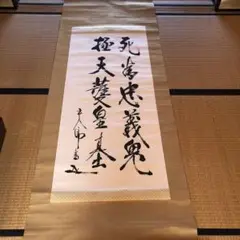 死為忠義鬼
極天護皇基